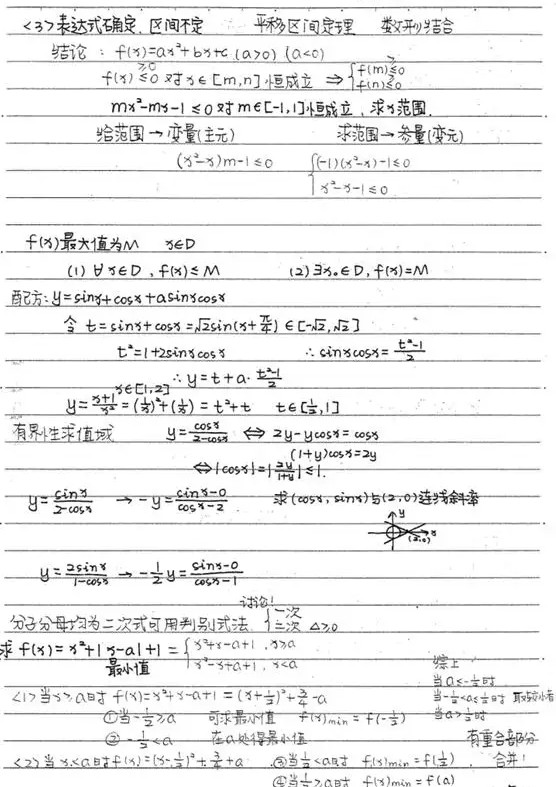 <3>表达式确定、区间不定 平移区间定理 数形结合
结论：f(x)=ax²+bx+c (a>0) (a<0)
f(x) ≥0 ≤0 对x∈[m,n]恒成立 ⇒ {f(m)≥0 ≤0
f(n)≥0 ≤0
mx²-mx-1≤0对m∈[-1,1]恒成立，求x范围.
给范围→变量(主元) 求范围→参量(变元)
(x²-x)m-1≤0 {(-1)(x²-x)-1≤0
x²-x-1≤0
f(x)最大值为M x∈D
(1) ∀x∈D, f(x)≤M (2) ∃x₀∈D, f(x)=M
配方: y=sinx+cosx+asinxcosx
令 t=sinx+cosx=√2sin(x+π/4)∈[-√2,√2]
t²=1+2sinxcosx ∴ sinxcosx=(t²-1)/2
∴ y=t+a·(t²-1)/2
x∈[1,2]
y=(x+1)/x²=(1/x)²+(1/x)=t²+t t∈[1/2,1]
有界性求值域 y=cosx/(2-cosx) ⇔ 2y-ycosx=cosx
(1+y)cosx=2y
⇔|cosx|=|2y/(1+y)|≤1.
y=sinx/(2-cosx) → -y=(sinx-0)/(cosx-2) 求(cosx,sinx)与(2,0)连线斜率
y
x
(2,0)
y=2sinx/(1-cosx) → -1/2y=(sinx-0)/(cosx-1)
讨论!
分子分母均为二次式可用判别式法 {一次
二次 Δ≥0
求 f(x)=x²+|x-a|+1={x²+x-a+1, x≥a
x²-x+a+1, x<a
最小值
<1>当x≥a时 f(x)=x²+x-a+1=(x+1/2)²+3/4-a
①当-1/2≥a 可求最小值 f(x)min=f(-1/2)
②-1/2<a 在a处得最小值
<2>当x<a时f(x)=(x-1/2)²+3/4+a ③当1/2<a时 f(x)min=f(1/2)
④当1/2≥a时 f(x)min=f(a)
综上
当a≤-1/2时
当-1/2<a≤1/2时 取较小者
当a>1/2时
有重合部分
合并!